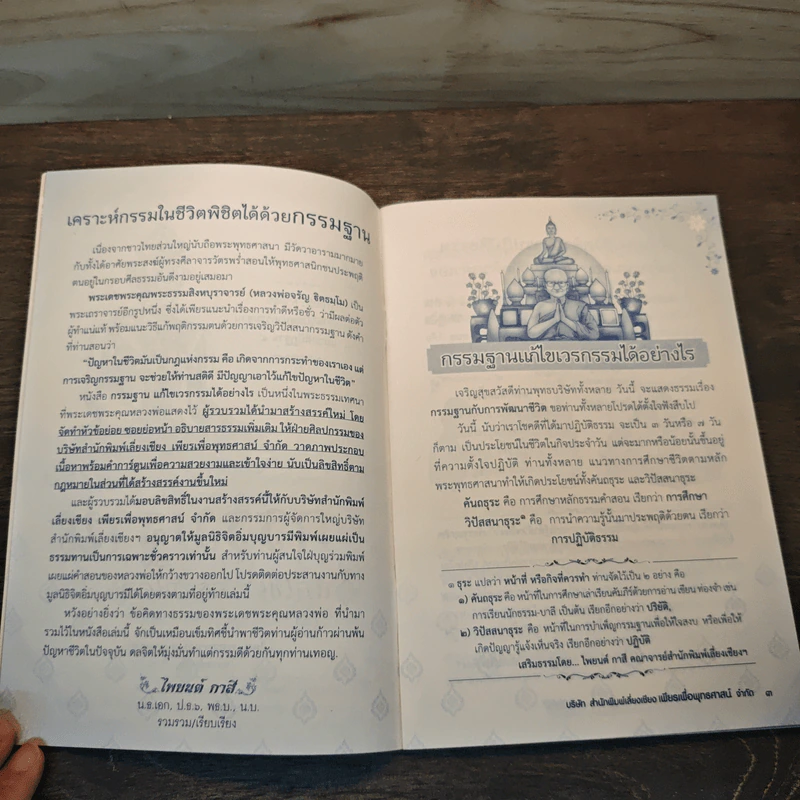 เคราะห์กรรมในชีวิตพิชิตได้ด้วยกรรมฐาน
เนื่องจากชาวไทยส่วนใหญ่นับถือพระพุทธศาสนา มีวัดวาอารามมากมาย
กับทั้งได้อาศัยพระสงฆ์ผู้ทรงศีลาจารวัตรพร่ำสอนให้พุทธศาสนิกชนประพฤติ
ตนอยู่ในกรอบศีลธรรมอันดีงามอยู่เสมอมา
พระเดชพระคุณพระธรรมสิงหบุราจารย์ (หลวงพ่อจรัญ ฐิตธมฺโม) เป็น
พระเถราจารย์อีกรูปหนึ่ง ซึ่งได้เพียรแนะนำเรื่องการทำดีหรือชั่ว ว่ามีผลต่อตัว
ผู้ทำแน่แท้ พร้อมแนะวิธีแก้พฤติกรรมตนด้วยการเจริญวิปัสสนากรรมฐาน ดังคำ
ที่ท่านสอนว่า
“ปัญหาในชีวิตมันเป็นกฎแห่งกรรม คือ เกิดจากการกระทำของเราเอง แต่
การเจริญกรรมฐาน จะช่วยให้ท่านสติดี มีปัญญาเอาไว้แก้ไขปัญหาในชีวิต”
หนังสือ กรรมฐาน แก้ไขเวรกรรมได้อย่างไร เป็นหนึ่งในพระธรรมเทศนา
ที่พระเดชพระคุณหลวงพ่อแสดงไว้ ผู้รวบรวมได้นำมาสร้างสรรค์ใหม่ โดย
จัดทำหัวข้อย่อย ซอยย่อหน้า อธิบายสารธรรมเพิ่มเติม ให้ฝ่ายศิลปกรรมของ
บริษัทสำนักพิมพ์เลี่ยงเชียง เพียรเพื่อพุทธศาสน์ จำกัด วาดภาพประกอบ
เนื้อหาพร้อมคำการ์ตูนเพื่อความสวยงามและเข้าใจง่าย นับเป็นลิขสิทธิ์ตาม
กฎหมายในส่วนที่ได้สร้างสรรค์งานขึ้นใหม่
และผู้รวบรวมได้มอบลิขสิทธิ์ในงานสร้างสรรค์นี้ให้กับบริษัทสำนักพิมพ์
เลี่ยงเชียง เพียรเพื่อพุทธศาสน์ จำกัด และกรรมการผู้จัดการใหญ่บริษัท
สำนักพิมพ์เลี่ยงเชียงฯ อนุญาตให้มูลนิธิจิตอิ่มบุญบารมีพิมพ์เผยแผ่เป็น
ธรรมทานเป็นการเฉพาะชั่วคราวเท่านั้น สำหรับท่านผู้สนใจใฝ่บุญร่วมพิมพ์
เผยแผ่คำสอนของหลวงพ่อให้กว้างขวางออกไป โปรดติดต่อประสานงานกับทาง
มูลนิธิจิตอิ่มบุญบารมีได้โดยตรงตามที่อยู่ท้ายเล่มนี้
หวังอย่างยิ่งว่า ข้อคิดทางธรรมของพระเดชพระคุณหลวงพ่อ ที่นำมา
รวมไว้ในหนังสือเล่มนี้ จักเป็นเหมือนเข็มทิศชี้นำพาชีวิตท่านผู้อ่านก้าวผ่านพ้น
ปัญหาชีวิตในปัจจุบัน ดลจิตให้มุ่งมั่นทำแต่กรรมดีด้วยกันทุกท่านเทอญ.
ไพยนต์ กาสี
น.ธ.เอก, ป.ธ.๖, พธ.บ., น.บ.
รวบรวม/เรียบเรียง
กรรมฐานแก้ไขเวรกรรมได้อย่างไร
เจริญสุขสวัสดีท่านพุทธบริษัททั้งหลาย วันนี้ จะแสดงธรรมเรื่อง
กรรมฐานกับการพัฒนาชีวิต ขอท่านทั้งหลายโปรดได้ตั้งใจฟังสืบไป
วันนี้ นับว่าเราโชคดีที่ได้มาปฏิบัติธรรม จะเป็น ๓ วันหรือ ๗ วัน
ก็ตาม เป็นประโยชน์ในชีวิตในกิจประจำวัน แต่จะมากหรือน้อยนั้นขึ้นอยู่
ที่ความตั้งใจปฏิบัติ ท่านทั้งหลาย แนวทางการศึกษาชีวิตตามหลัก
พระพุทธศาสนาทำให้เกิดประโยชน์ทั้งคันถธุระ และวิปัสสนาธุระ
คันถธุระ คือ การศึกษาหลักธรรมคำสอน เรียกว่า การศึกษา
วิปัสสนาธุระ๑ คือ การนำความรู้นั้นมาประพฤติด้วยตน เรียกว่า
การปฏิบัติธรรม
๑ ธุระ แปลว่า หน้าที่ หรือกิจที่ควรทำ ท่านจัดไว้เป็น ๒ อย่าง คือ
๑) คันถธุระ คือ หน้าที่ในการศึกษาเล่าเรียนคัมภีร์ด้วยการอ่าน เขียน ท่องจำ เช่น
การเรียนนักธรรม-บาลี เป็นต้น เรียกอีกอย่างว่า ปริยัติ,
๒) วิปัสสนาธุระ คือ หน้าที่ในการบำเพ็ญกรรมฐานเพื่อให้ใจสงบ หรือเพื่อให้
เกิดปัญญารู้แจ้งเห็นจริง เรียกอีกอย่างว่า ปฏิบัติ
เสริมธรรมโดย... ไพยนต์ กาสี คณาจารย์สำนักพิมพ์เลี่ยงเชียงฯ
บริษัท สำนักพิมพ์เลี่ยงเชียง เพียรเพื่อพุทธศาสน์ จำกัด ๓